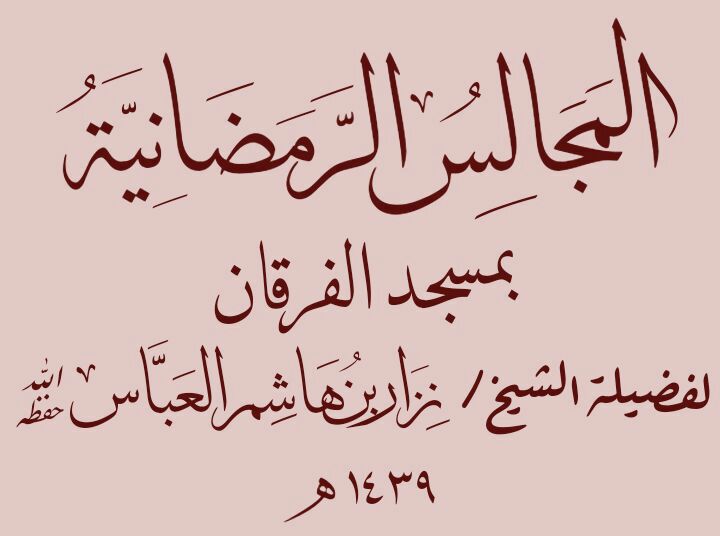 المَجَالِسُ الرَّمَضَانِيَّةُ
بمسجد الفرقان
لفضيلة الشيخ / نِزَار بنُ هَاشِم العَبَّاس حفظه الله
١٤٣٩ هـ